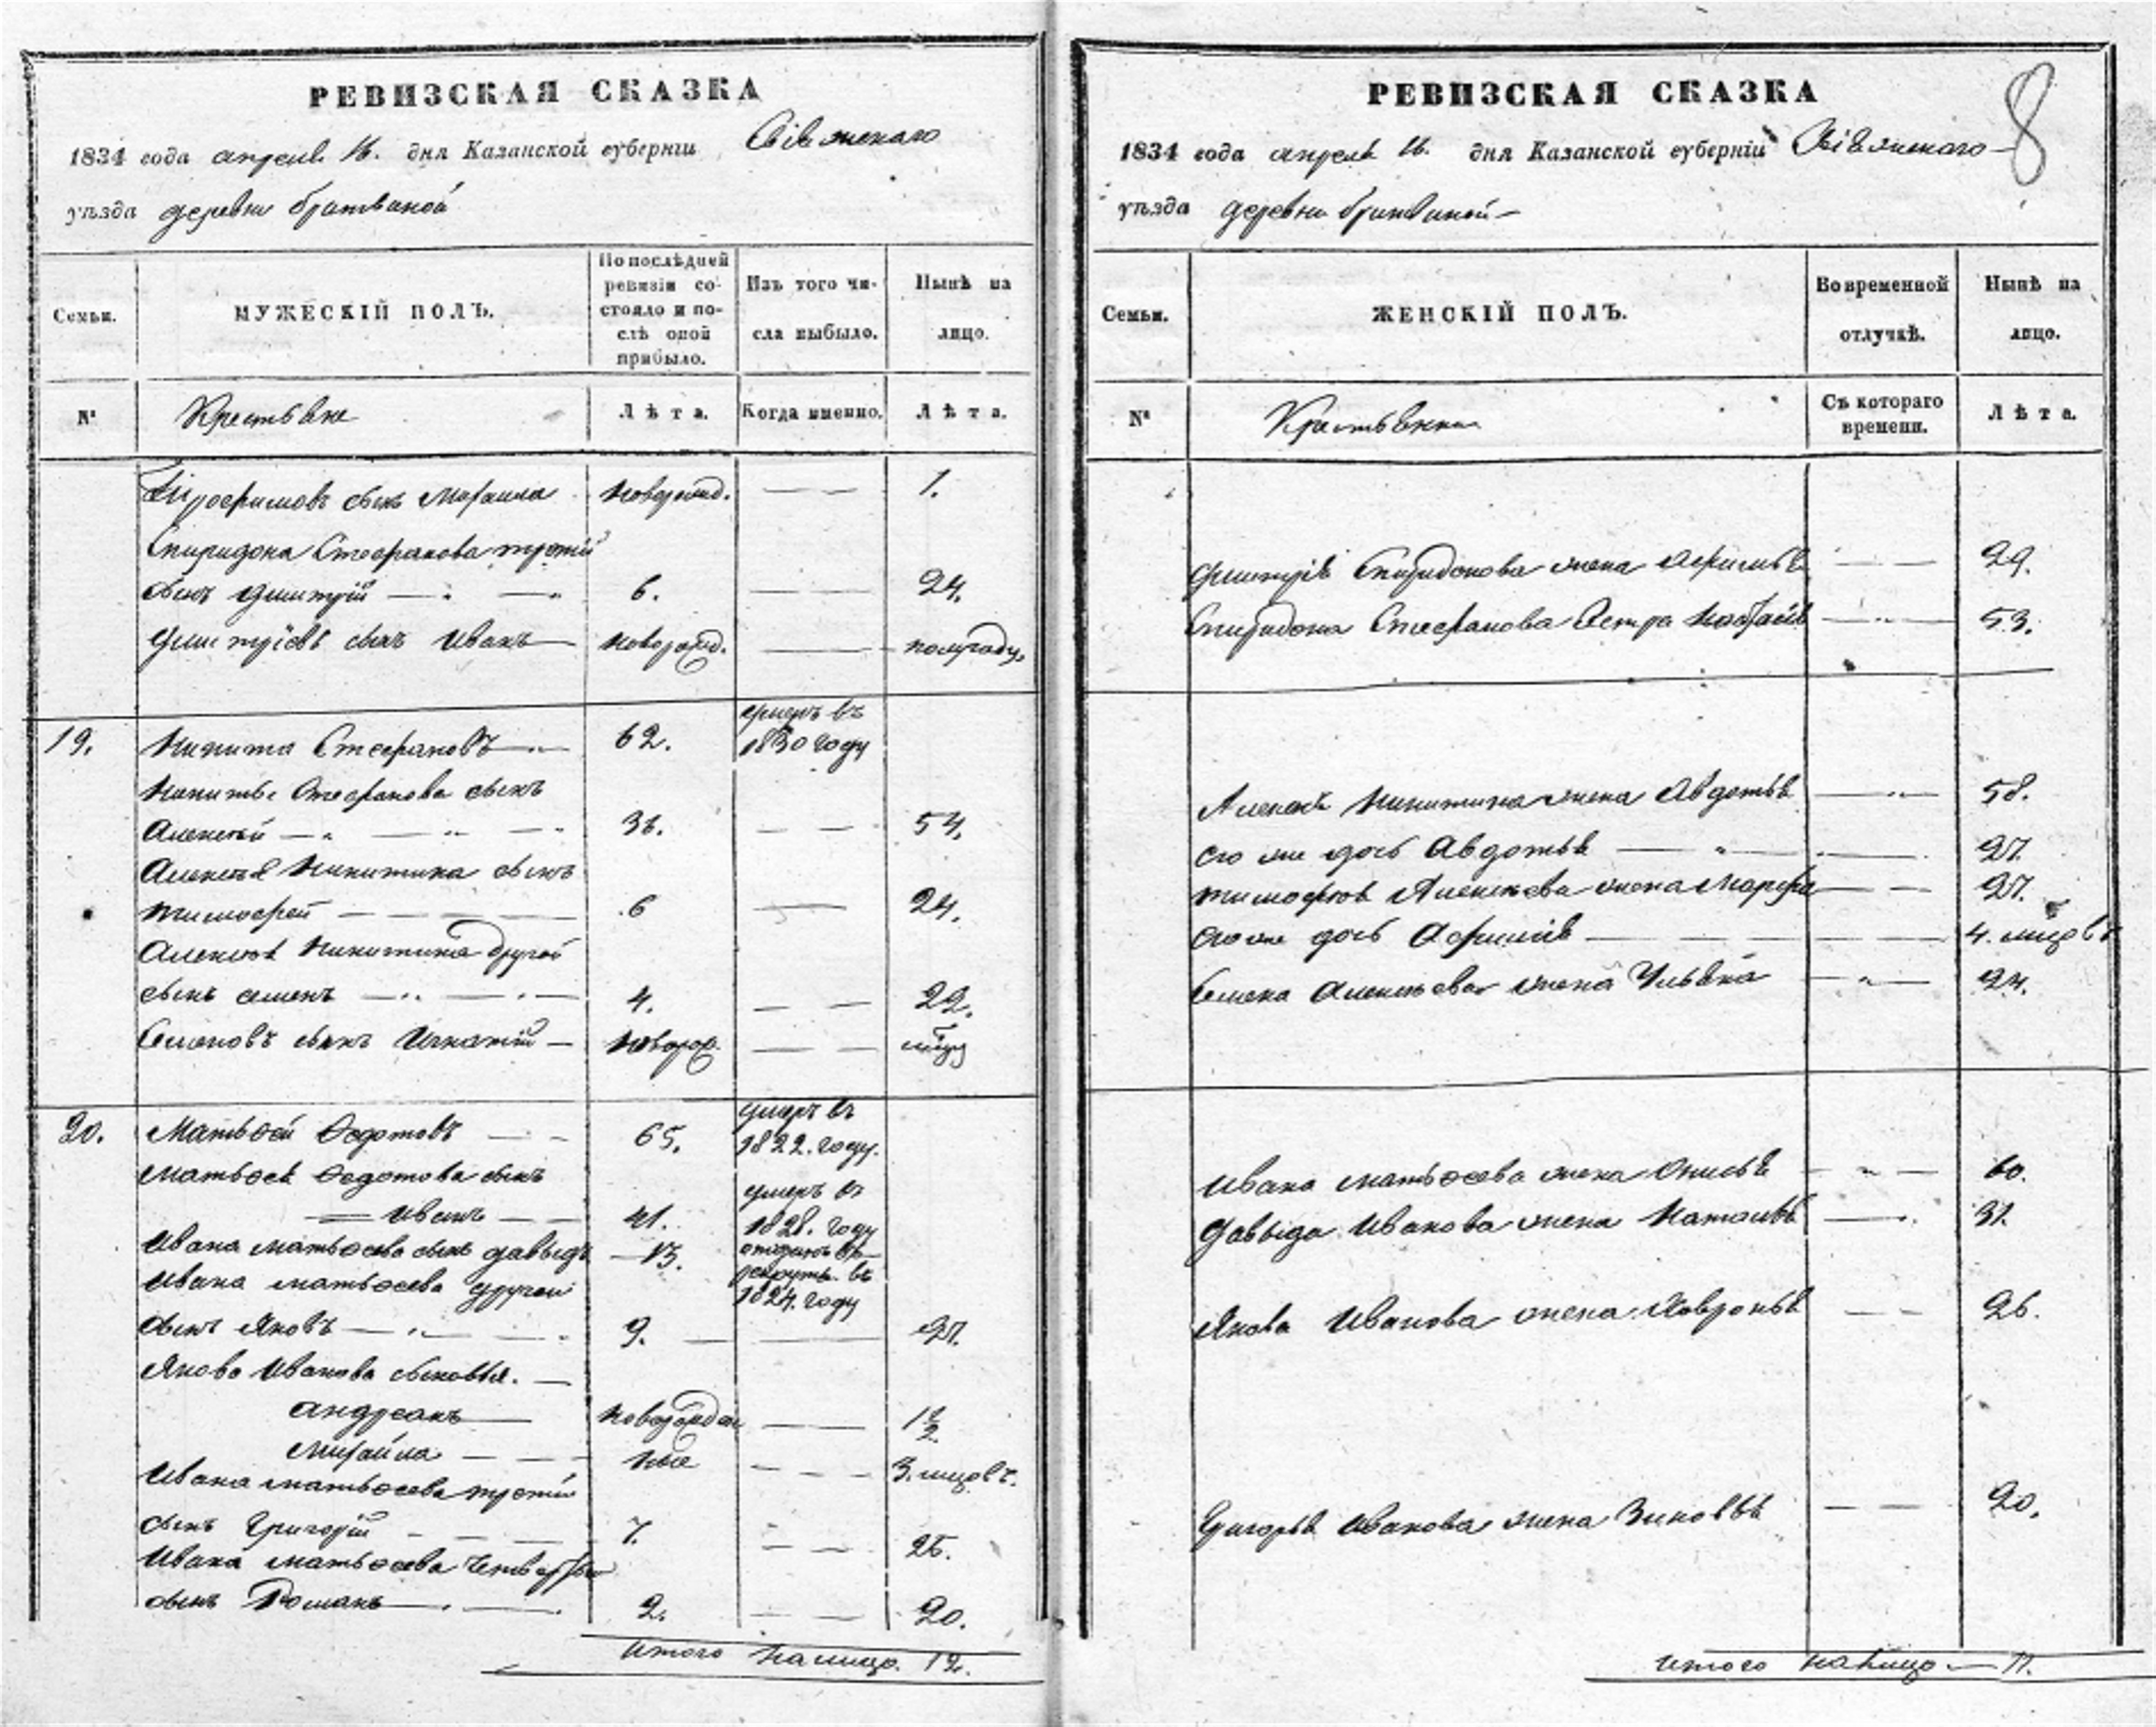 РЕВИЗСКАЯ СКАЗКА
1834 года апреля 16. дня Казанской губерніи Свіяжскаго
уѣзда деревни бритвиной
Семьи.
МУЖЕСКІЙ ПОЛЪ.
По послѣдней ревизіи со-
стояло и по-
слѣ оной
прибыло.
Изъ того чи-
сла выбыло.
Нынѣ на
лицо.
№
Крестьяне
Лѣта.
Когда именно.
Лѣта.
сынъ Михаила новорожд. — — 1.
Спиридона Стефанова третій
сынъ Дмитрій — — 6. — — 24.
Дмитріевъ сынъ Иванъ — новорожд. — — полугоду
19. Никита Стефановъ — 62. умеръ въ
1830 году
Никиты Стефанова сынъ
Алексѣй — — — 36. — — 54.
Алексѣя Никитина сынъ
Тимофей — — — 6 — 24.
Алексѣя Никитина другой
сынъ Семенъ — — — 4. — — 22.
Семеновъ сынъ Игнатій — новорож. — —
20. Матвѳей Ѳедотовъ — — 65. умеръ въ
1822. году.
Матвѳея Ѳедотова сынъ
Иванъ — — 41. умеръ въ
1828. году
Ивана Матвѳеева сынъ Давыдъ — 13. отданъ въ
рекруты въ
1824. году
Ивана Матвѳеева другой
сынъ Яковъ — — — 9. — — 27.
Якова Иванова сыновья. —
Андреанъ — новорожден — 1 1/2
Михайла — — ные — — — 3. мцовъ.
Ивана Матвѳеева третій
сынъ Григорій — — — 7. — — 25.
Ивана Матвѳеева четвертый
сынъ Романъ — — 2. — — 20.
Итого налицо. 12.
РЕВИЗСКАЯ СКАЗКА
8
1834 года апреля 16. дня Казанской губерніи Свіяжскаго
уѣзда деревни бритвиной
Семьи.
ЖЕНСКІЙ ПОЛЪ.
Во временной
отлучкѣ.
Нынѣ на
лицо.
№
Крестьянки
Съ котораго
времени.
Лѣта.
Дмитрія Спиридонова жена Афимья — — 29.
Спиридона Стефанова — — 53.
Алексѣя Никитина жена Авдотья — — 58.
его же дочь Авдотья — — — 27.
Тимофея Алексѣева жена Марфа — — 27.
его же дочь Афимія — — — 4. мцовъ
Семена Алексѣева жена Ульяна — — 24.
Ивана Матвѳеева жена Анисья — — 60.
Давыда Иванова жена Наталья — 31.
Якова Иванова жена Хавронья — — 26.
Григорья Иванова жена Зиновья — — 20.
Итого налицо — 11.